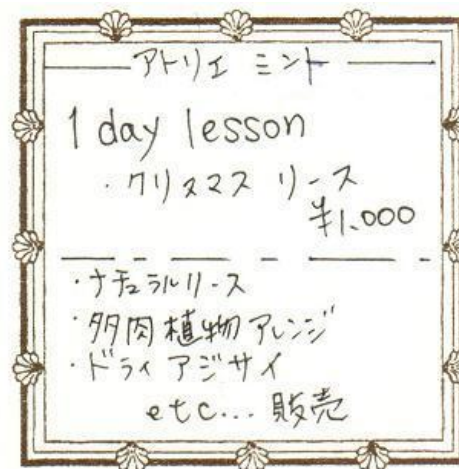 アトリエ ミント
1 day lesson
・クリスマス リース
¥1,000
・ナチュラルリース
・多肉植物アレンジ
・ドライアジサイ
etc... 販売